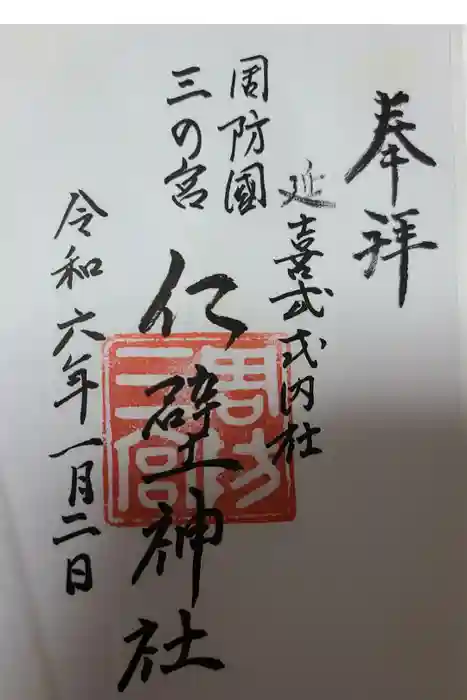 奉拝
延喜式式内社
周防國
三の宮
仁壁神社
令和六年一月二日
周防
三宮